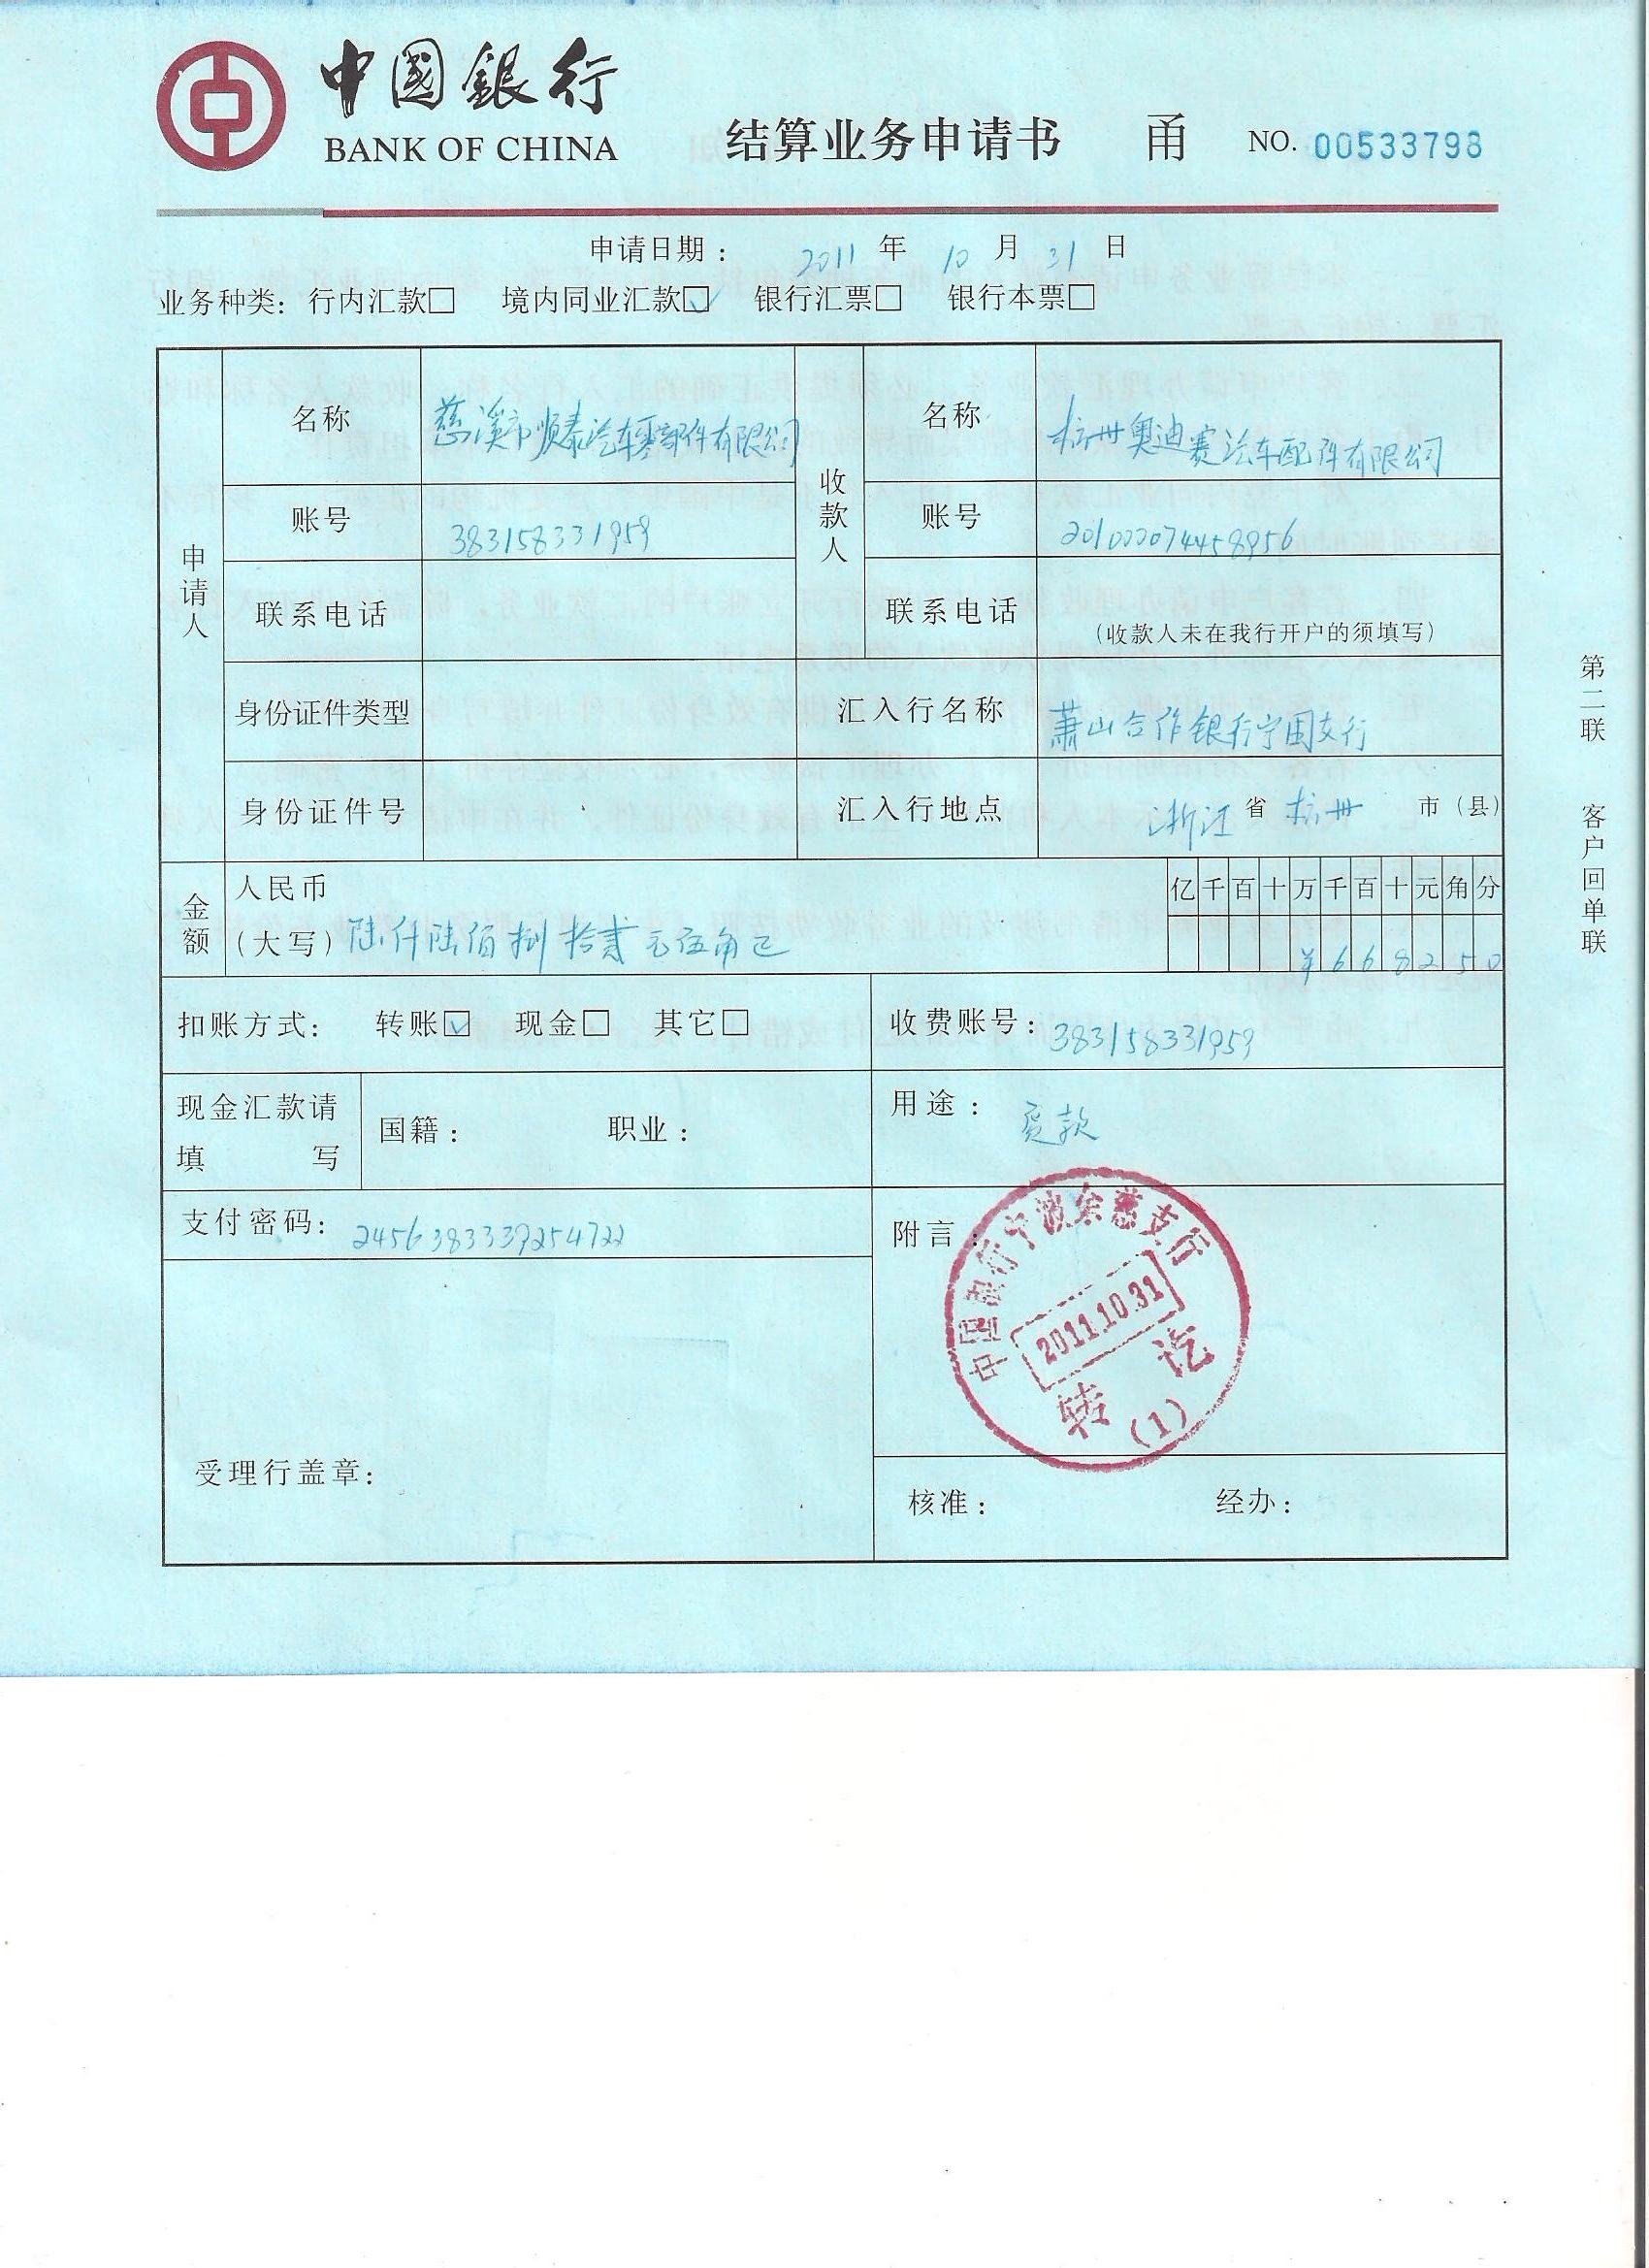 中國銀行
BANK OF CHINA
结算业务申请书 甬 NO. 00533798
申请日期： 2011 年 10 月 31 日
业务种类: 行内汇款□ 境内同业汇款☑ 银行汇票□ 银行本票□
申请人
名称 慈溪市顺泰汽车零部件有限公司
账号 383158331959
联系电话
身份证件类型
身份证件号
收款人
名称 杭州奥迪赛汽车配件有限公司
账号 201000074458956
联系电话 (收款人未在我行开户的须填写)
汇入行名称 萧山合作银行宁围支行
汇入行地点 浙江 省 杭州 市（县）
金额 人民币
(大写) 陆仟陆佰捌拾贰元伍角正
亿千百十万千百十元角分
¥668250
扣账方式: 转账☑ 现金□ 其它□
收费账号: 383158331959
现金汇款请
填 写
国籍: 职业:
用途: 货款
支付密码: 2456383339254722
附言:
中国银行宁波余慈支行
2011.10.31
转讫
(1)
受理行盖章:
核准: 经办:
第二联 客户回单联